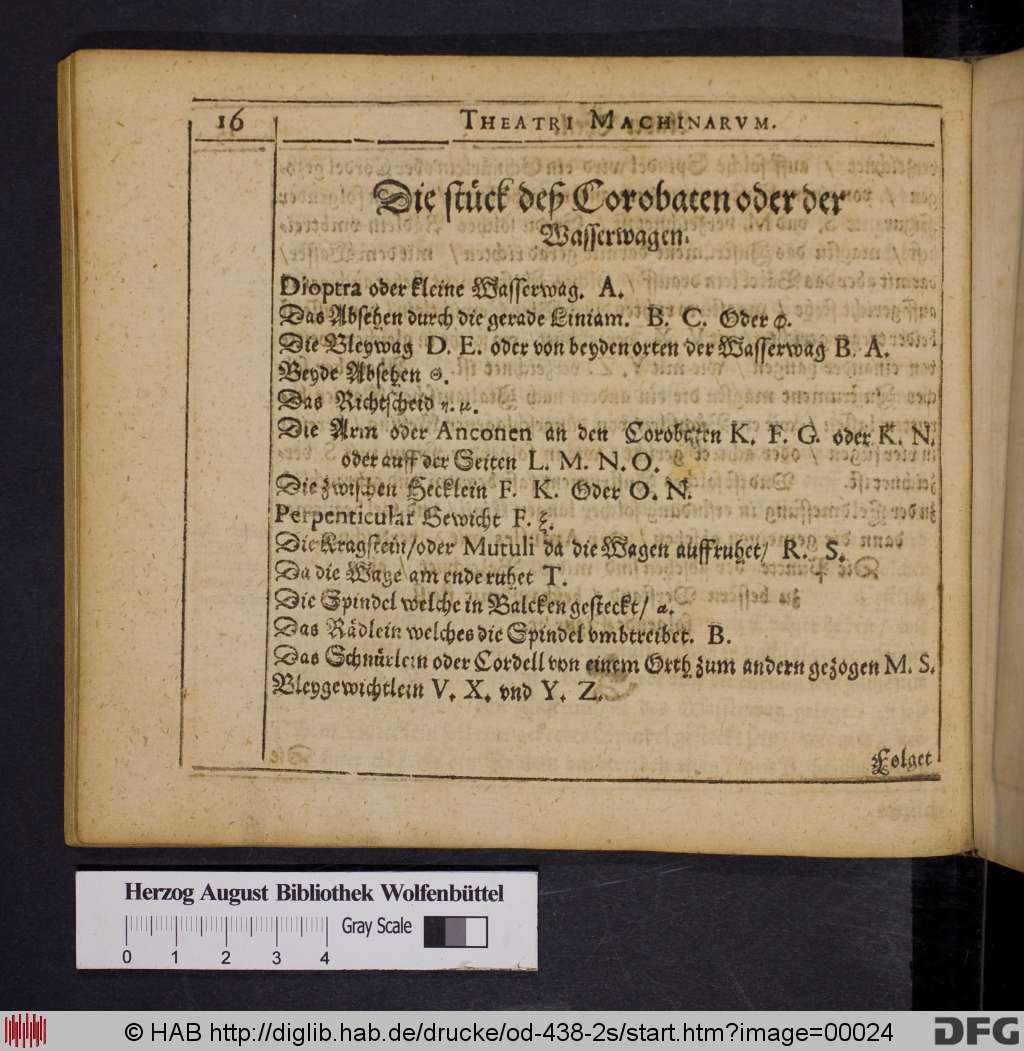 16
THEATRI MACHINARVM.
Die stück deß Corobaten oder der
Wasserwagen.
Dioptra oder kleine Wasserwag. A.
Das Absehen durch die gerade Liniam. B. C. Oder φ.
Die Bleywag D. E. oder von beyden orten der Wasserwag B A.
Beyde Absehen Θ.
Das Richtscheid η. μ.
Die Arm oder Anconen an den Corobaten K. F. G. oder K. N.
oder auff der Seiten L. M. N. O.
Die zwischen Hecklein F. K. Oder O. N.
Perpenticular Gewicht F. ξ.
Die Kragstein/oder Mutuli da die Wagen auffruhet/ R. S.
Da die Wage am ende ruhet T.
Die Spindel welche in Balcken gesteckt/ a.
Das Rädlein welches die Spindel vmbtreibet. B.
Das Schnürlein oder Cordell von einem Orth zum andern gezogen M. S.
Bleygewichtlein V. X. vnd Y. Z.
Folget
Herzog August Bibliothek Wolfenbüttel
Gray Scale
0 1 2 3 4
© HAB http://diglib.hab.de/drucke/od-438-2s/start.htm?image=00024
DFG